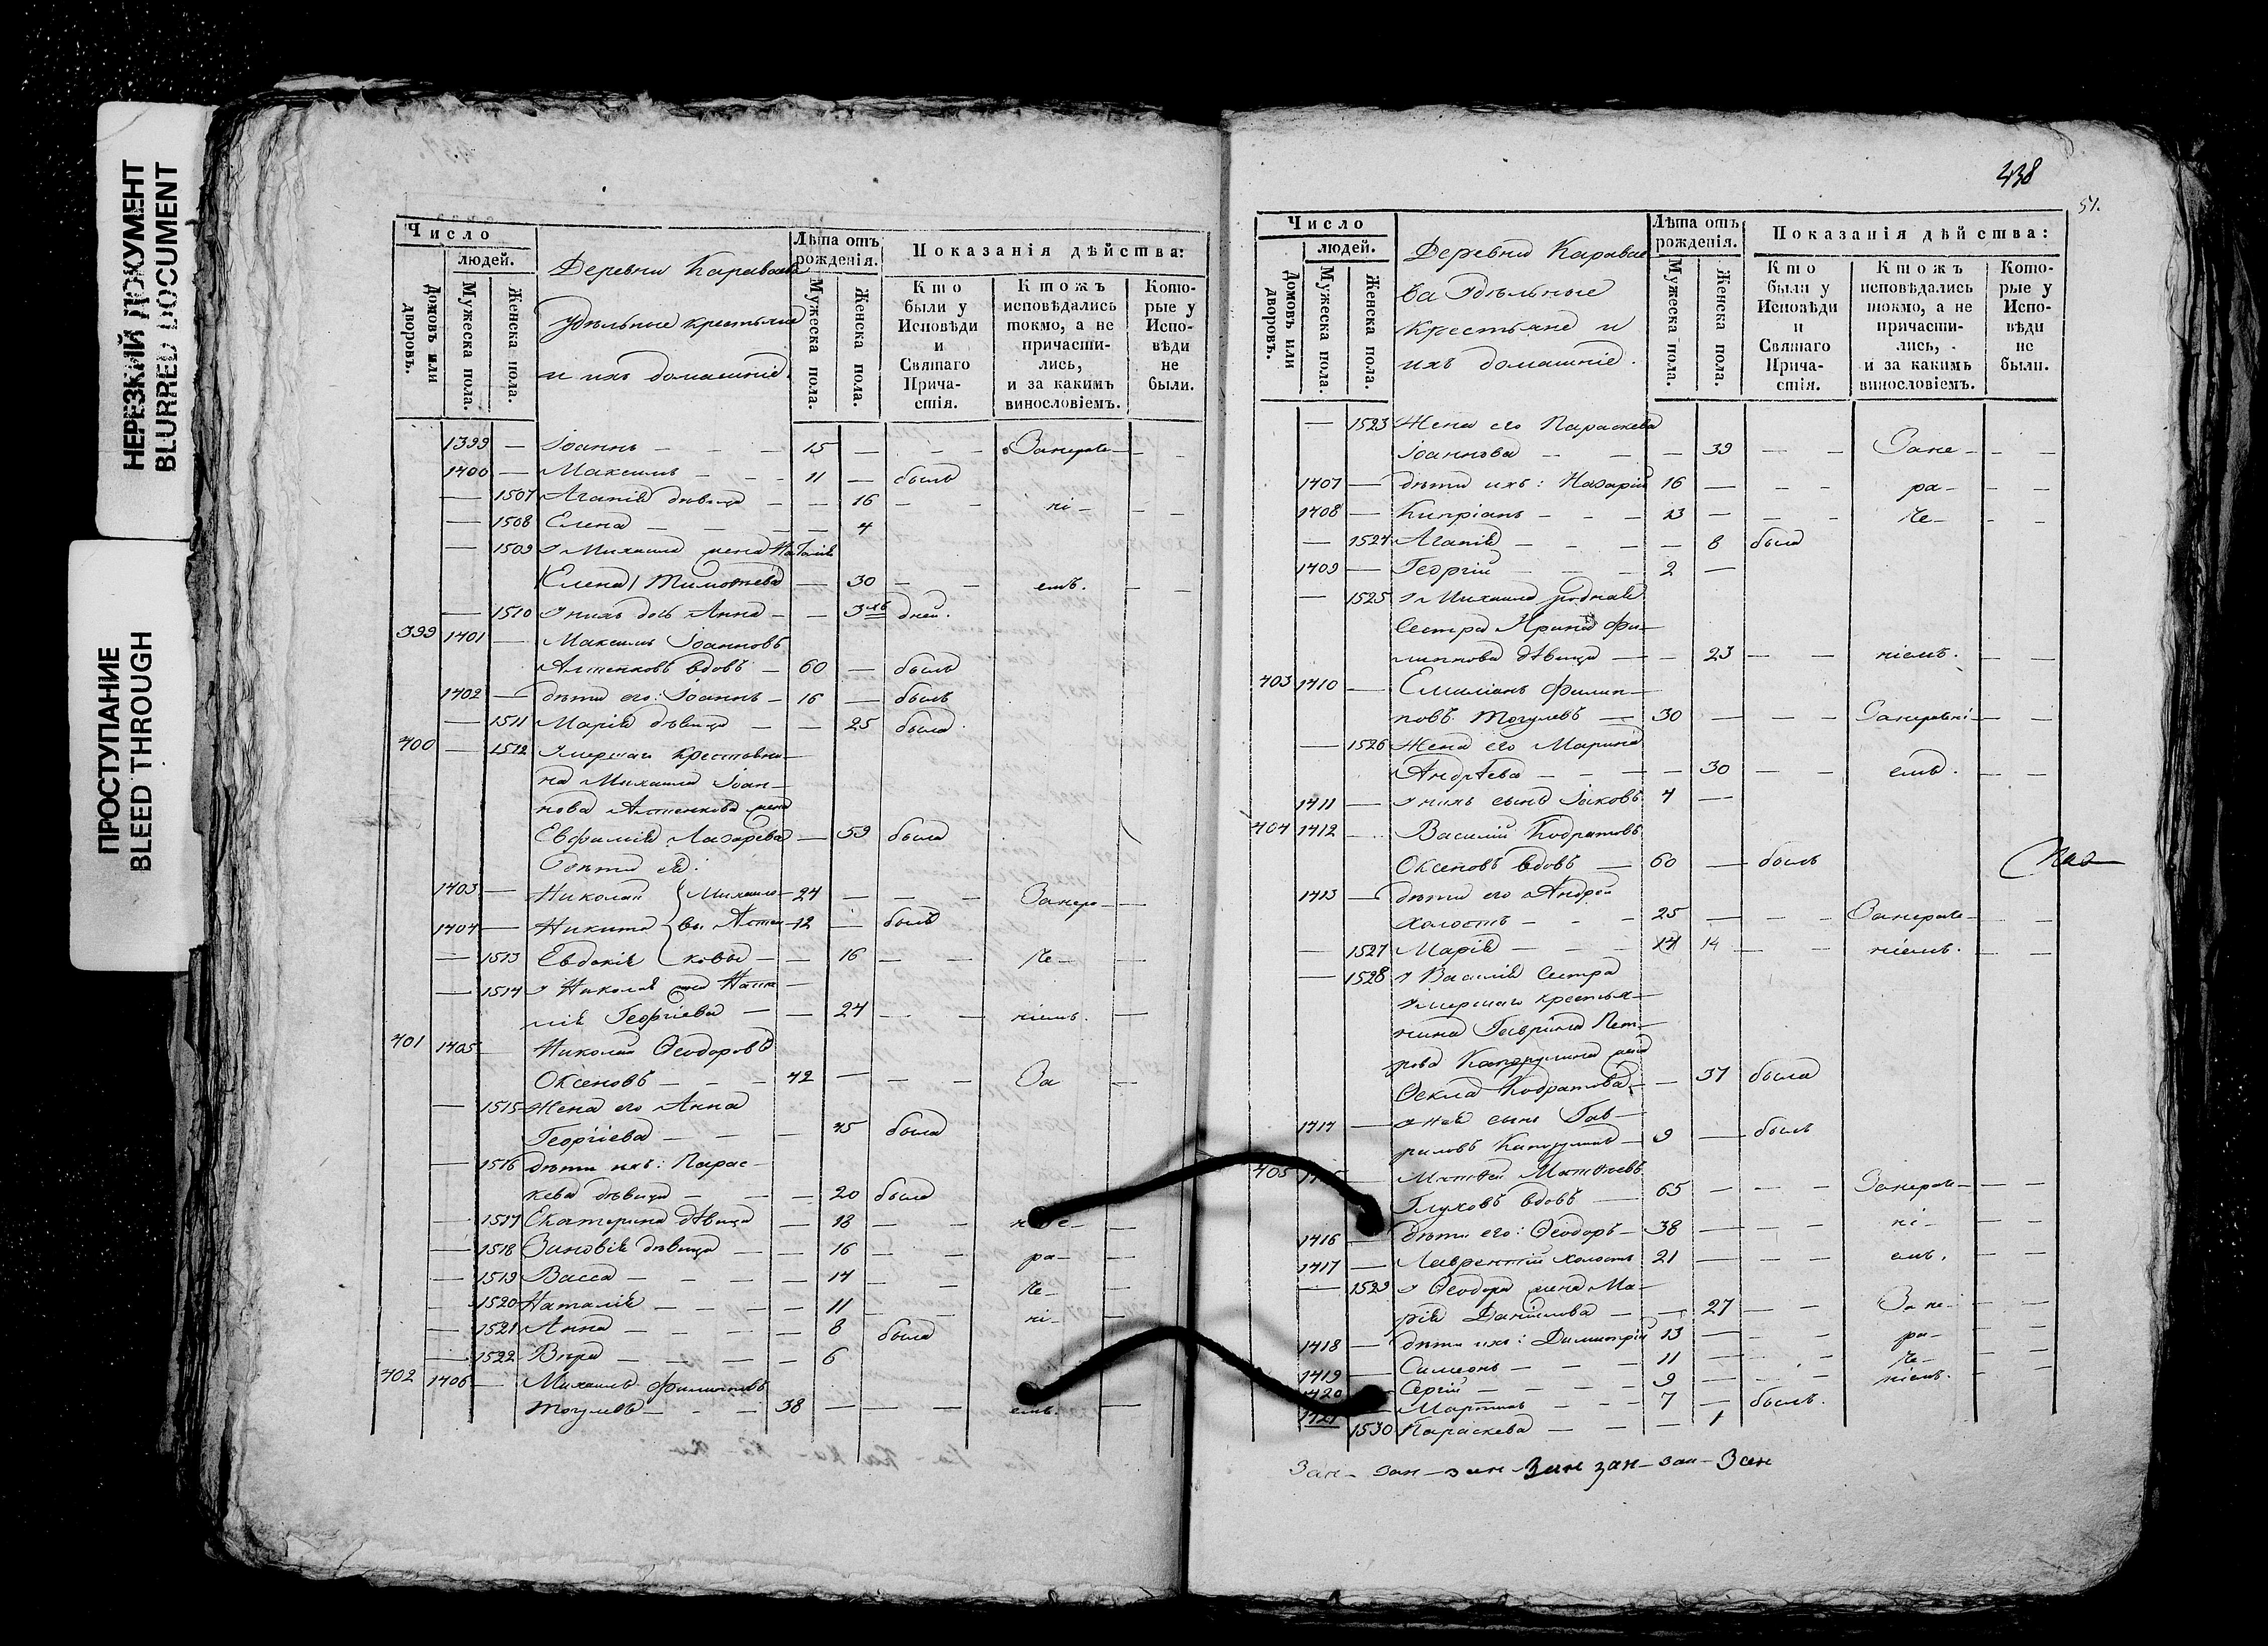 НЕРЕЗКИЙ ДОКУМЕНТ
BLURRED DOCUMENT
ПРОСТУПАНИЕ
BLEED THROUGH
Число
людей.
Домовъ или дворовъ.
Мужеска пола.
Женска пола.
Деревни Караваева
удѣльные крестьяне
и ихъ домашніе.
Лѣта отъ рожденія.
Мужеска пола.
Женска пола.
Показанія дѣйства:
Кто были у Исповѣди и Святаго Прича-стія.
Ктожъ исповѣдались токмо, а не причасти-лись, и за какимъ винословіемъ.
Кото-рые у Испо-вѣди не были.
1399 — Іоаннъ — 15 — — —
1400 — Максимъ — 11 — былъ
— 1507 Агапія дѣвица — — 16 — — ні —
— 1508 Елена — — — — 4
— 1509 у Михаила жена
Елена Тимофѣева — 30 — — емъ. — —
— 1510 у нихъ дочь Анна — — 3хъ дней.
399 1401 — Максимъ Іоанновъ
вдовъ — 60 — былъ
1402 — дѣти его: Іоаннъ — 16 — былъ
— 1511 Марія дѣвица — — 25 была
400 — 1512 Умершаго крестьяни-
на Михаила Іоан-
нова жена
Евфимія Лазарева — 59 была
дѣти ея:
1403 — Николай Михайло- 24 — — — —
1404 — Никита вы 12 — былъ
— 1513 Евдокія ковы — — 16 — — че — —
— 1514 у Николая
Георгіева — — 24 — — ніемъ. —
401 1405 — Николай Ѳеодоровъ
Оксеновъ — — — 42 — — — За —
— 1515 Жена его Анна
Георгіева — — — 45 была
— 1516 дѣти ихъ: Парас-
кева дѣвица — — — 20 была
— 1517 Екатерина дѣвица — 18 — — —
— 1518 Зиновія дѣвица — — 16 — — ра — —
— 1519 Васса — — — — 14 — — че — —
— 1520 Наталія — — — — 11 — — ні — —
— 1521 Анна — — — — 8 была
— 1522 Вѣра — — — — 6
402 1406 — Михаилъ Филипповъ
Тогулевъ — — — 38 — — — емъ. —
438
51.
Число
людей.
Домовъ или дворовъ.
Мужеска пола.
Женска пола.
Деревни Каравае-
ва Удѣльные
крестьяне и
ихъ домашніе.
Лѣта отъ рожденія.
Мужеска пола.
Женска пола.
Показанія дѣйства:
Кто были у Исповѣди и Святаго Прича-стія.
Ктожъ исповѣдались токмо, а не причасти-лись, и за какимъ винословіемъ.
Кото-рые у Испо-вѣди не были.
— 1523 Жена его Параскева
Іоаннова — — — 39 — — Запе — — —
1407 — дѣти ихъ: Назарій 16 — — — ра — — —
1408 — Кипріанъ — — — 13 — — — че — — —
— 1524 Агапія — — — — 8 была
1409 — Георгій — — 2 —
— 1525 у Михаила родная
сестра Ирина Фи-
липпова дѣвица — — 23 — — ніемъ. — —
403 1410 — Емиліанъ Филип-
повъ Тогулевъ — 30 — — — — —
— 1526 Жена его Марина
Андрѣева — — — — 30 — — емъ. — —
1411 — у нихъ сынъ Іаковъ 4 —
404 1412 — Василій Кодратовъ
Оксеновъ вдовъ — 60 — былъ
1413 — дѣти его Андрей
холостъ — — — 25 — — — — —
— 1527 Марія — — — 14 — — ніемъ. — —
— 1528 у Василія сестра
умершаго крестья-
нина Гавріила Пет-
рова жена
Ѳекла Кодратова — — 37 была
1414 — у ней сынъ Гав-
риловъ — 9 — былъ
405 — Матѳей Матѳѣевъ
Глуховъ вдовъ — 65 — — — — —
1416 — дѣти его: Ѳеодоръ — 38 — — — ні — — —
1417 — Лаврентій холостъ 21 — — — емъ. — —
— 1529 у Ѳеодора жена Ма-
рія Даніилова — — 27 — — Запе — — —
1418 — дѣти ихъ: Димитрій 13 — — — ра — — —
1419 — Симеонъ — — — 11 — — — че — — —
1420 — Сергій — — — 9 — — — ніемъ. —
1421 — Мартинъ — — — 7 — былъ.
1530 Параскева — — — 1
Зан — зан — зан Зан зан — зан — Зан